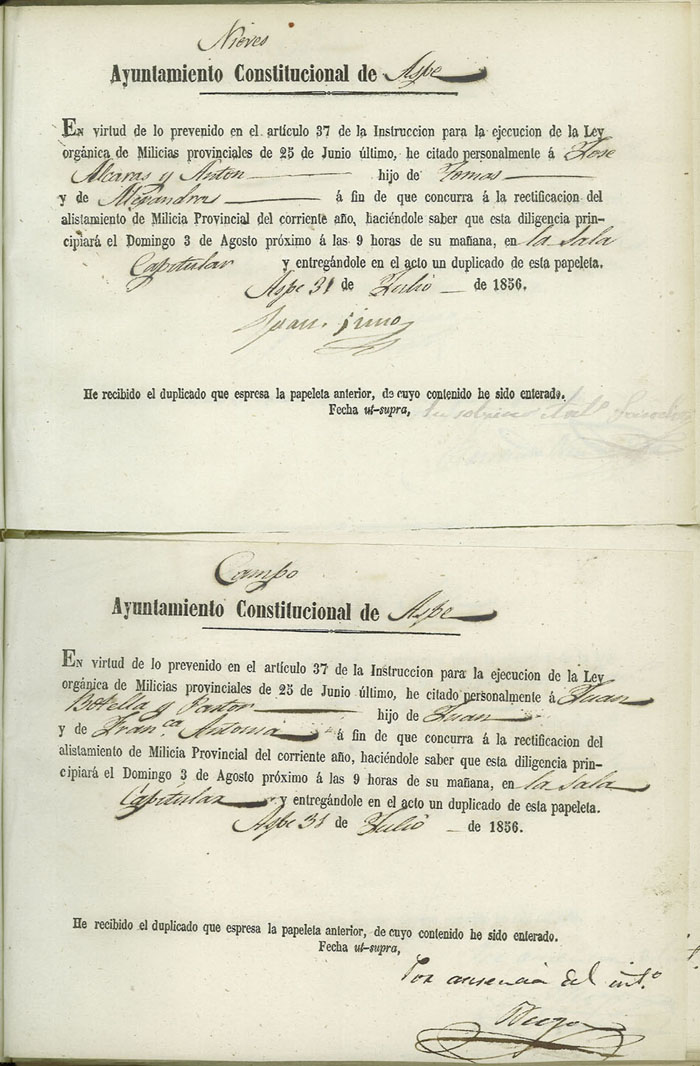 Nieves
Ayuntamiento Constitucional de Aspe
EN virtud de lo prevenido en el artículo 37 de la Instruccion para la ejecucion de la Ley
orgánica de Milicias provinciales de 25 de Junio último, he citado personalmente á Jose
Alcaras y Anton hijo de Tomas
y de Alejandra á fin de que concurra á la rectificacion del
alistamiento de Milicia Provincial del corriente año, haciéndole saber que esta diligencia prin-
cipiará el Domingo 3 de Agosto próximo á las 9 horas de su mañana, en la Sala
Capitular y entregándole en el acto un duplicado de esta papeleta.
Aspe 31 de Julio de 1856.
He recibido el duplicado que espresa la papeleta anterior, de cuyo contenido he sido enterado.
Fecha ut-supra,
Campo
Ayuntamiento Constitucional de Aspe
EN virtud de lo prevenido en el artículo 37 de la Instruccion para la ejecucion de la Ley
orgánica de Milicias provinciales de 25 de Junio último, he citado personalmente á Juan
Botella y Pastor hijo de Juan
y de Fran.ca Antonia á fin de que concurra á la rectificacion del
alistamiento de Milicia Provincial del corriente año, haciéndole saber que esta diligencia prin-
cipiará el Domingo 3 de Agosto próximo á las 9 horas de su mañana, en la Sala
Capitular y entregándole en el acto un duplicado de esta papeleta.
Aspe 31 de Julio de 1856.
He recibido el duplicado que espresa la papeleta anterior, de cuyo contenido he sido enterado.
Fecha ut-supra,
Por ausencia del int.o